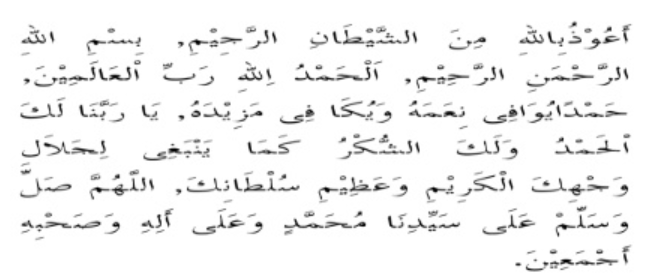 أَعُوْذُبِاللهِ مِنَ الشَّيْطَانِ الرَّجِيْمِ, بِسْمِ اللهِ
الرَّحْمَنِ الرَّحِيْمِ, اَلْحَمْدُ لِلهِ رَبِّ الْعَالَمِيْنَ,
حَمْدًايُوَافِى نِعَمَهُ وَيُكَا فِى مَزِيْدَهُ, يَا رَبَّنَا لَكَ
الْحَمْدُ وَلَكَ الشُّكْرُ كَمَا يَنْبَغِى لِجَلَالِ
وَجْهِكَ الْكَرِيْمِ وَعَظِيْمِ سُلْطَانِكَ, اللَّهُمَّ صَلِّ
وَسَلِّمْ عَلَى سَيِّدِنَا مُحَمَّدٍ وَعَلَى أَلِهِ وَصَحْبِهِ
أَجْمَعِيْنَ.